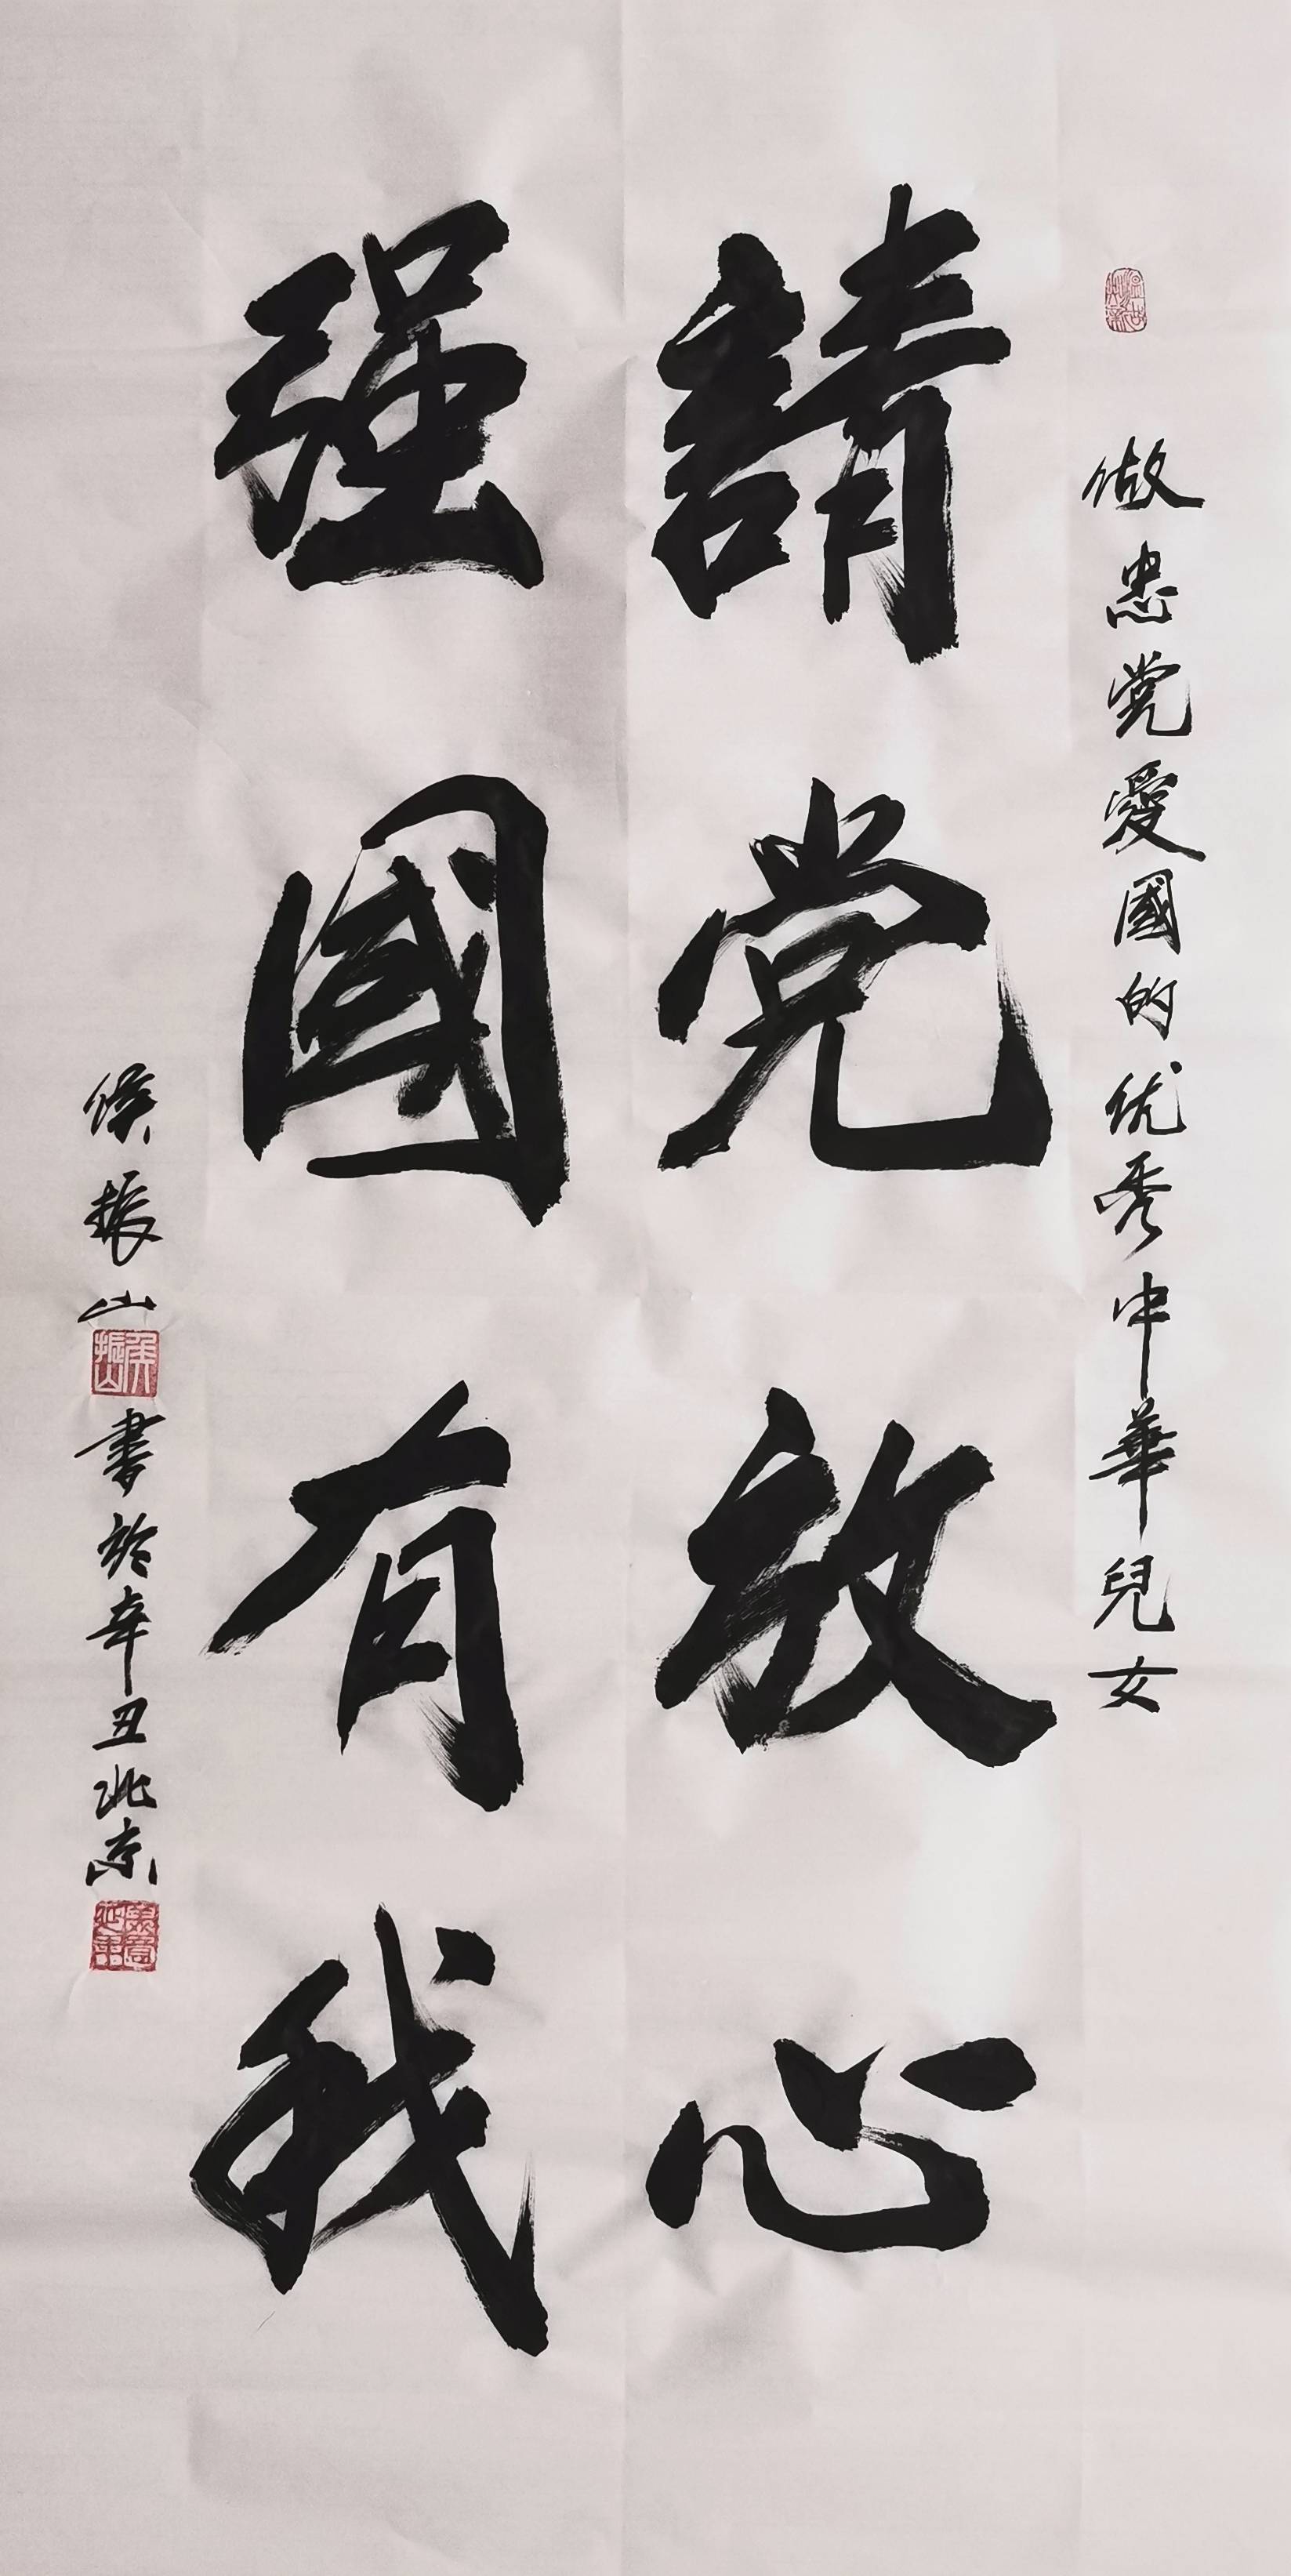 做忠党爱國的优秀中華兒女
請党放心
强國有我
侯振山
侯振山
書於辛丑北京